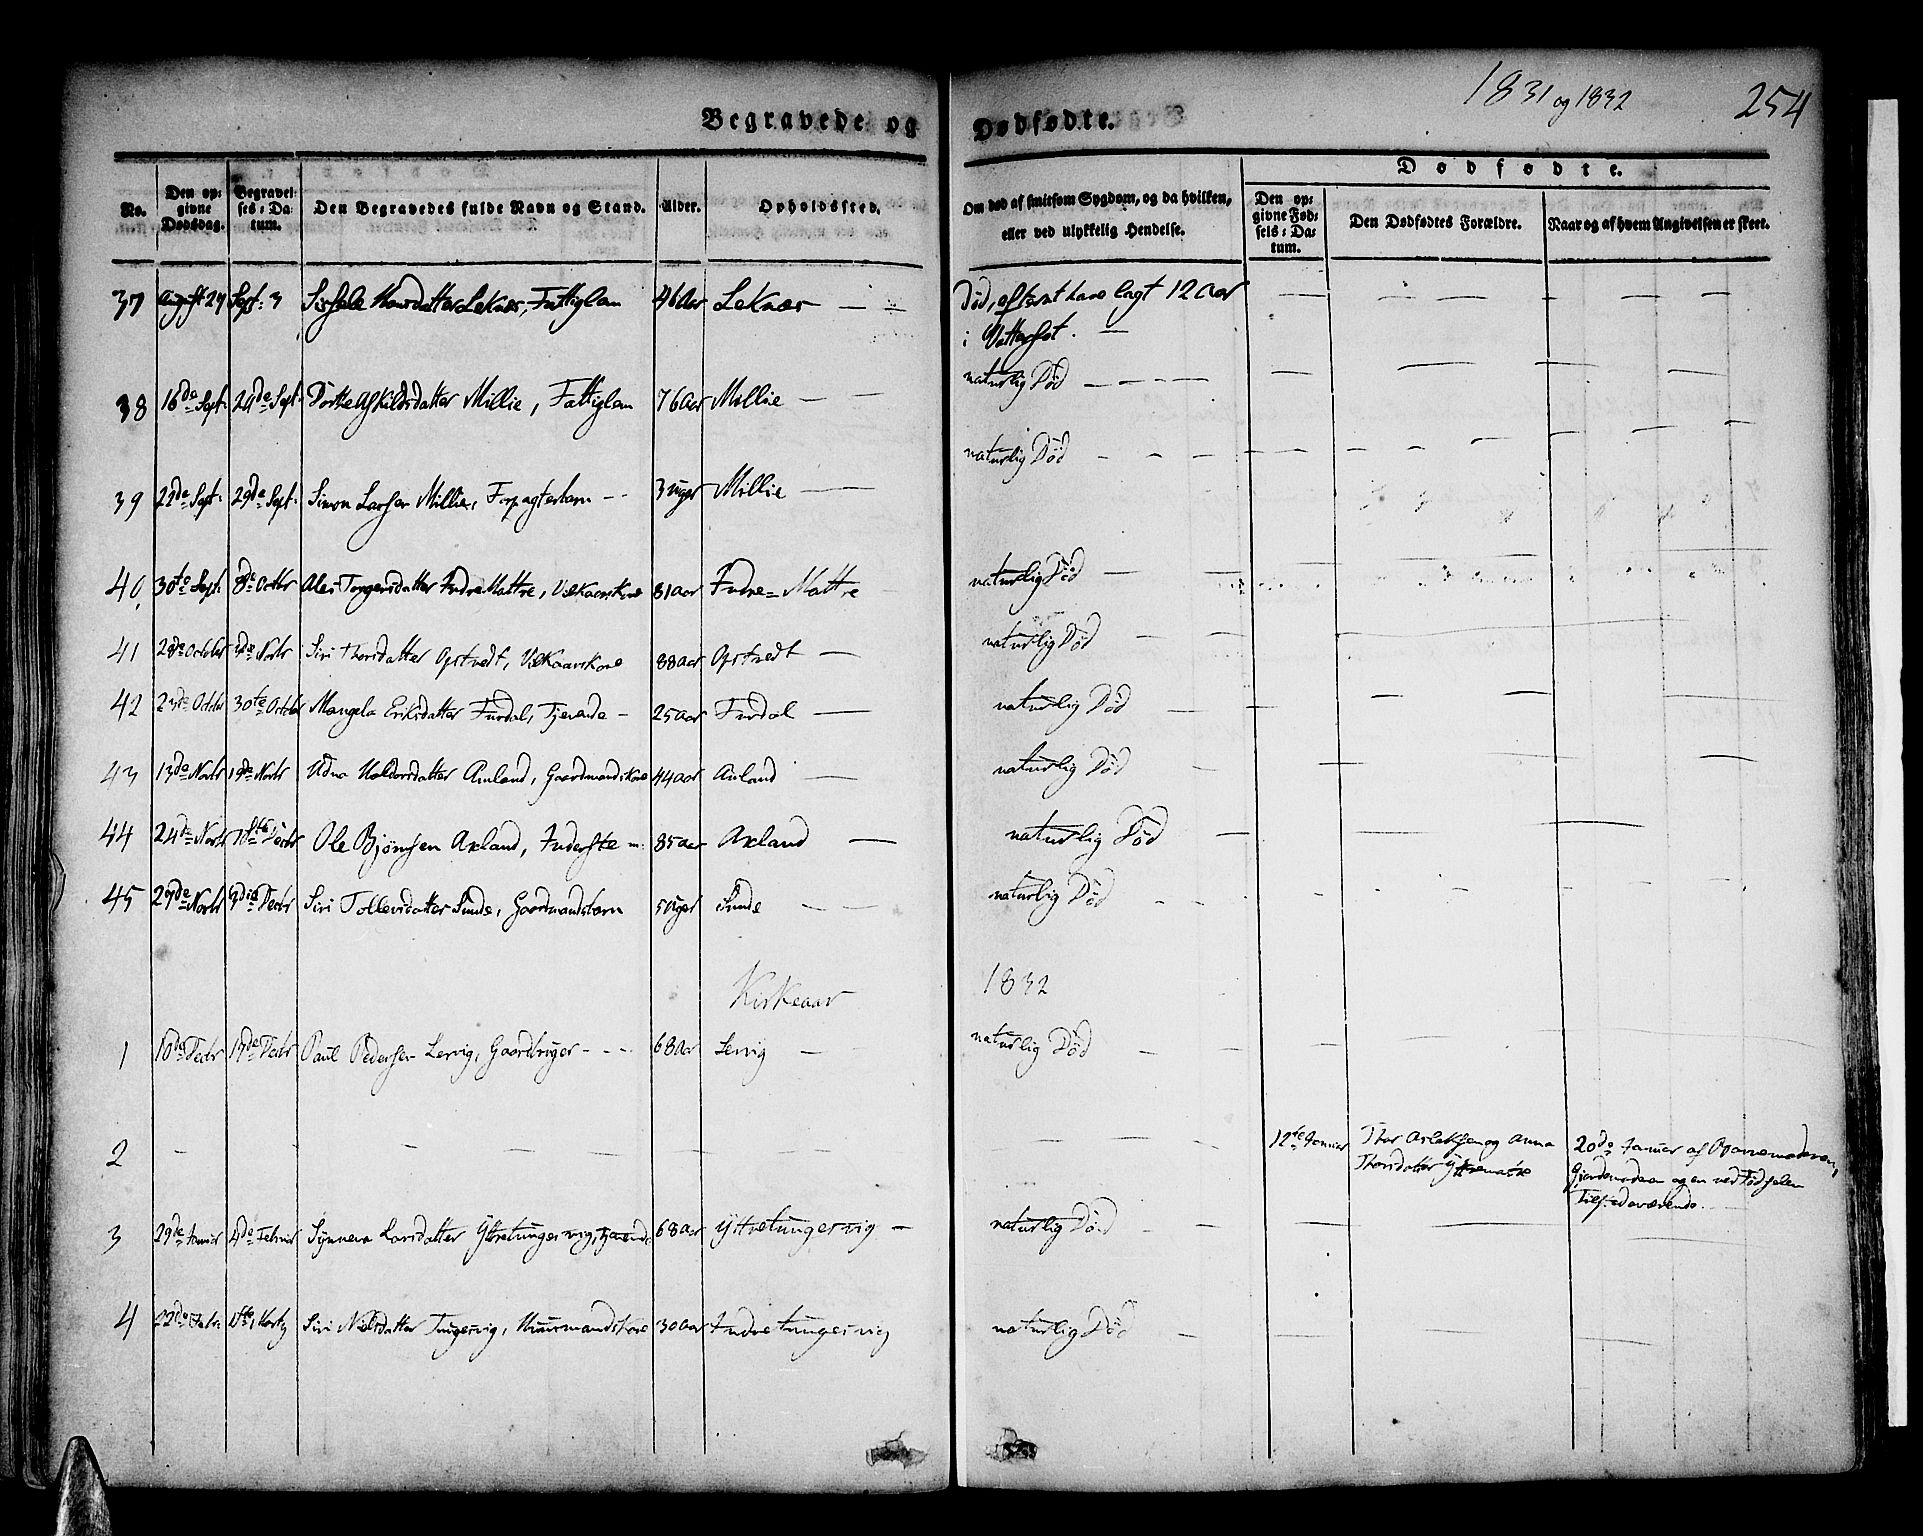 1831 og 1832
254
Begravede og Dødfødte.
Dødfødte.
No.
Den op-
givne
Dødsdag.
Begravel-
ses-Da-
tum.
Den Begravedes fulde Navn og Stand.
Alder.
Opholdssted.
Om død af smitsom Sygdom, og da hvilken,
eller ved ulykkelig Hendelse.
Den op-
givne Fød-
sels-Da-
tum.
Den Dødfødtes Forældre.
Naar og af hvem Angivelsen er skeet.
37 August 24 Sept: 3 Lekner, Fattiglem 46 Aar Leknes — — Død, efter at have lagt 12 Aar — — — — — —
i Vattersot. —
38 16de Sept: 24de Sept: Dorthe Askildsdatter Millie, Fattiglem 76 Aar Millie — — naturlig Død — — — —
39 22de Sept: 29de Sept: Simon Larsen Millie, Forpagterbarn — — 3 uger Millie — — naturlig Død — — — —
40. 30te Sept: 8de Octbr Torgersdatter Indre Mattre, Vilkaarskone 81 Aar Indre= Mattre naturlig Død —
41 28de October Novbr Siri Thorsdatter Opstvedt, Vilkaarskone 88 Aar Opstvedt — naturlig Død — —
42 23de Octbr 30te Octbr Mangela Eriksdatter Furdal, Tjenende — 25 Aar Furdal — naturlig Død — —
43 13de Novbr 19de Novbr Udna Haldorsdatter Axland, Gaardmandskone 44 Aar Axland — naturlig Død —
44 24de Novbr Decbr Ole Bjørnsen Axland, Inderste 85 Aar Axland — naturlig Død —
45 29de Novbr Decbr Siri Tollevsdatter Sunde, Gaardmandsbarn 5 Uger Sunde — — naturlig Død — —
Kirkeaar 1832
1 10de Decbr 17de Decbr Paul Pedersen Lervig, Gaardbruger — — — 68 Aar Lervig — naturlig Død — —
2 — — — — — — — — 12te Januar Thor Aslaksen og Anna
Thorsdatter
20de Januar af Barnemoderen,
Gjordemoderen og en ved Fødselen
Tilstedeværende.
3 29de Januar 4de Februar Synneva Larsdatter Yttretungesvig, Tjenende 68 Aar Yttretungesvig — naturlig Død — —
4 22de Febr: Siri Nielsdatter Tungesvig, Huusmandskone 30 Aar Indretungesvig naturlig Død —